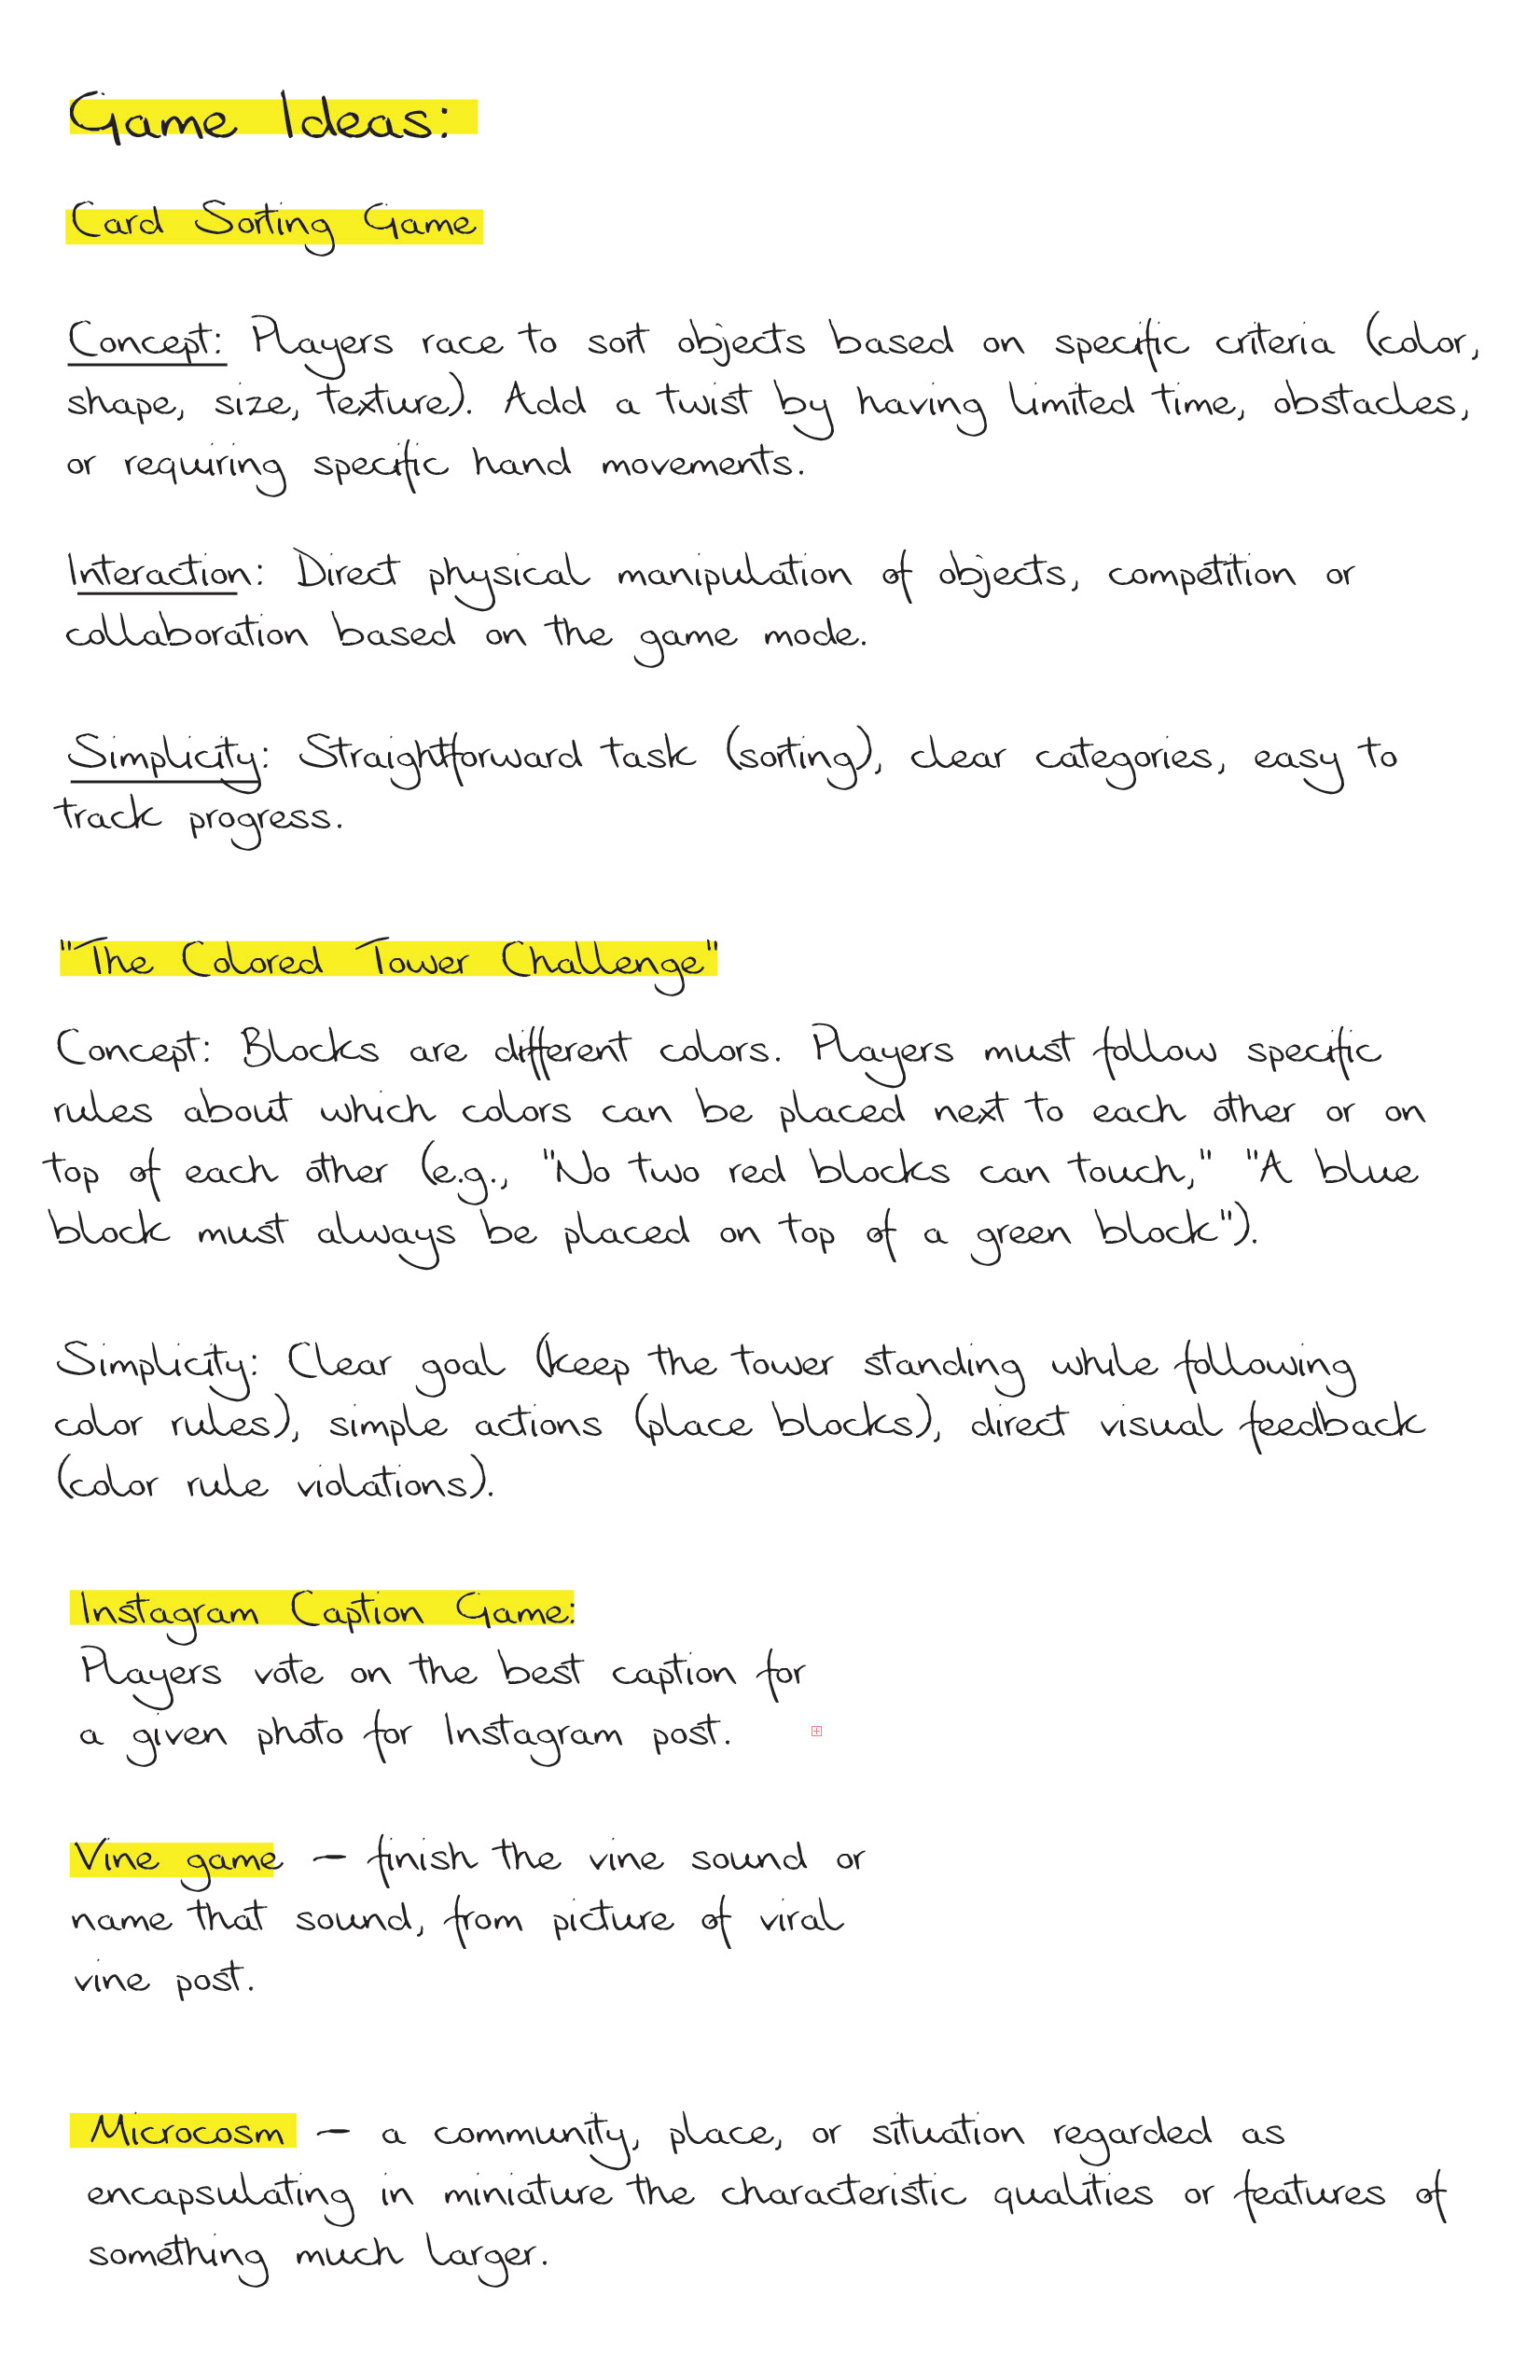 Game Ideas:
Card Sorting Game
Concept: Players race to sort objects based on specific criteria (color,
shape, size, texture). Add a twist by having limited time, obstacles,
or requiring specific hand movements.
Interaction: Direct physical manipulation of objects, competition or
collaboration based on the game mode.
Simplicity: Straightforward task (sorting), clear categories, easy to
track progress.
"The Colored Tower Challenge"
Concept: Blocks are different colors. Players must follow specific
rules about which colors can be placed next to each other or on
top of each other (e.g., "No two red blocks can touch," "A blue
block must always be placed on top of a green block").
Simplicity: Clear goal (keep the tower standing while following
color rules), simple actions (place blocks), direct visual feedback
(color rule violations).
Instagram Caption Game:
Players vote on the best caption for
a given photo for Instagram post.
Vine game – finish the vine sound or
name that sound, from picture of viral
vine post.
Microcosm – a community, place, or situation regarded as
encapsulating in miniature the characteristic qualities or features of
something much larger.